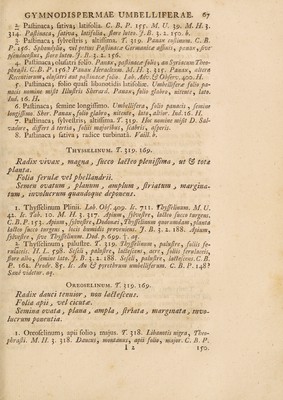 GYMNODISPERMÆ UMBELLIFERÆ. 67
2. Pastinaca, sativa, latifolia. C. B. P. 155. M. U. 39. M. H. 3.
314. Pastinaca, sativa, latifolia, flore luteo. J. B. 3. 2. 150. b.
3. Pastinaca, sylvestris, altissima. T. 319. Panax costinum. C. B.
P. 156. Sphondylio, vel potius Pastinacæ Germanicæ affinis, panax, sive
pseudocostus, flore luteo. J. B. 3. 2. 156.
4. Pastinaca, olusatri folio. Panax, pastinacæ folio, an Syriacum Theo-
phrasti. C. B. P. 156? Panax Heracleum. M. H. 3. 315. Panax, aliern
Recentiorum, olusatri aut pastinacæ folio. Lob. Adv. & Observ. 400. H.
5. Pastinaca, folio quasi libanotidis latifoliæ. Umbellifera folio pa-
nacis semine magis Illustris Sherard. Panax, folio glabro, nitente, lato.
Ind. 16. H.
6. Pastinaca, semine longissimo. Umbellifera, folio panacis, semine
longissimo. Sher. Panax, folio glabro, nitente, lato, altior. Ind. 16. H.
7. Pastinaca, sylvestris, altissima. T. 319. Hoc nomine misit D. Sal-
vadore, differt à tertia, foliis majoribus, scabris, asperis.
8. Pastinaca, sativa, radice turbinatâ. Vaill. b.
THYSSELINUM. T. 319. 169.
Radix vivax, magna, succo lacteo plenissima, ut & tota
planta.
Folia ferulæ vel phellandrii.
Semen ovatum, planum, amplum, striatum, margina-
tum, involucrum quandoque deponens.
1. Thysselinum Plinii. Lob. Obs. 409. Ic. 711. Thysselinum. M. U.
42. Ic. Tab. 10. M. H. 3. 317. Apium, sylvestre, lacteo succo turgens.
C. B. P. 153. Apium, sylvestre, Dodonæi, Thysselinum quorumdam, planta
lacteo succo turgens, locis humidis proveniens. J. B. 3. 2. 188. Apium,
sylvestre, sive Thysselinum. Dod. p. 699. ?. aq.
2. Thysselinum, palustre. T. 319. Thysselinum, palustre, foliis fe-
rulaceis. H. L. 598. Seseli, palustre, lactescens, acre, foliis ferulaceis,
flore albo, semine lato. J. B. 3. 2. 188. Seseli, palustre, lactescens. C. B.
P. 162. Prodr. 85. Ic. An & pyrethrum umbelliferum. C. B. P. 148?
Sane videtur. aq.
OREOSELINUM. T. 319. 169.
Radix dauci tenuior, non lactescens.
Folia apii, vel cicutæ.
Semina ovata, plana, ampla, striata, marginata, invo-
lucrum ponentia.
1. Oreoselinum; apii folio; majus. T. 318. Libanotis nigra, Theo-
phrasti. M. H. 3. 318. Daucus, montanus, apii folio, major. C. B. P.
I 2 150.